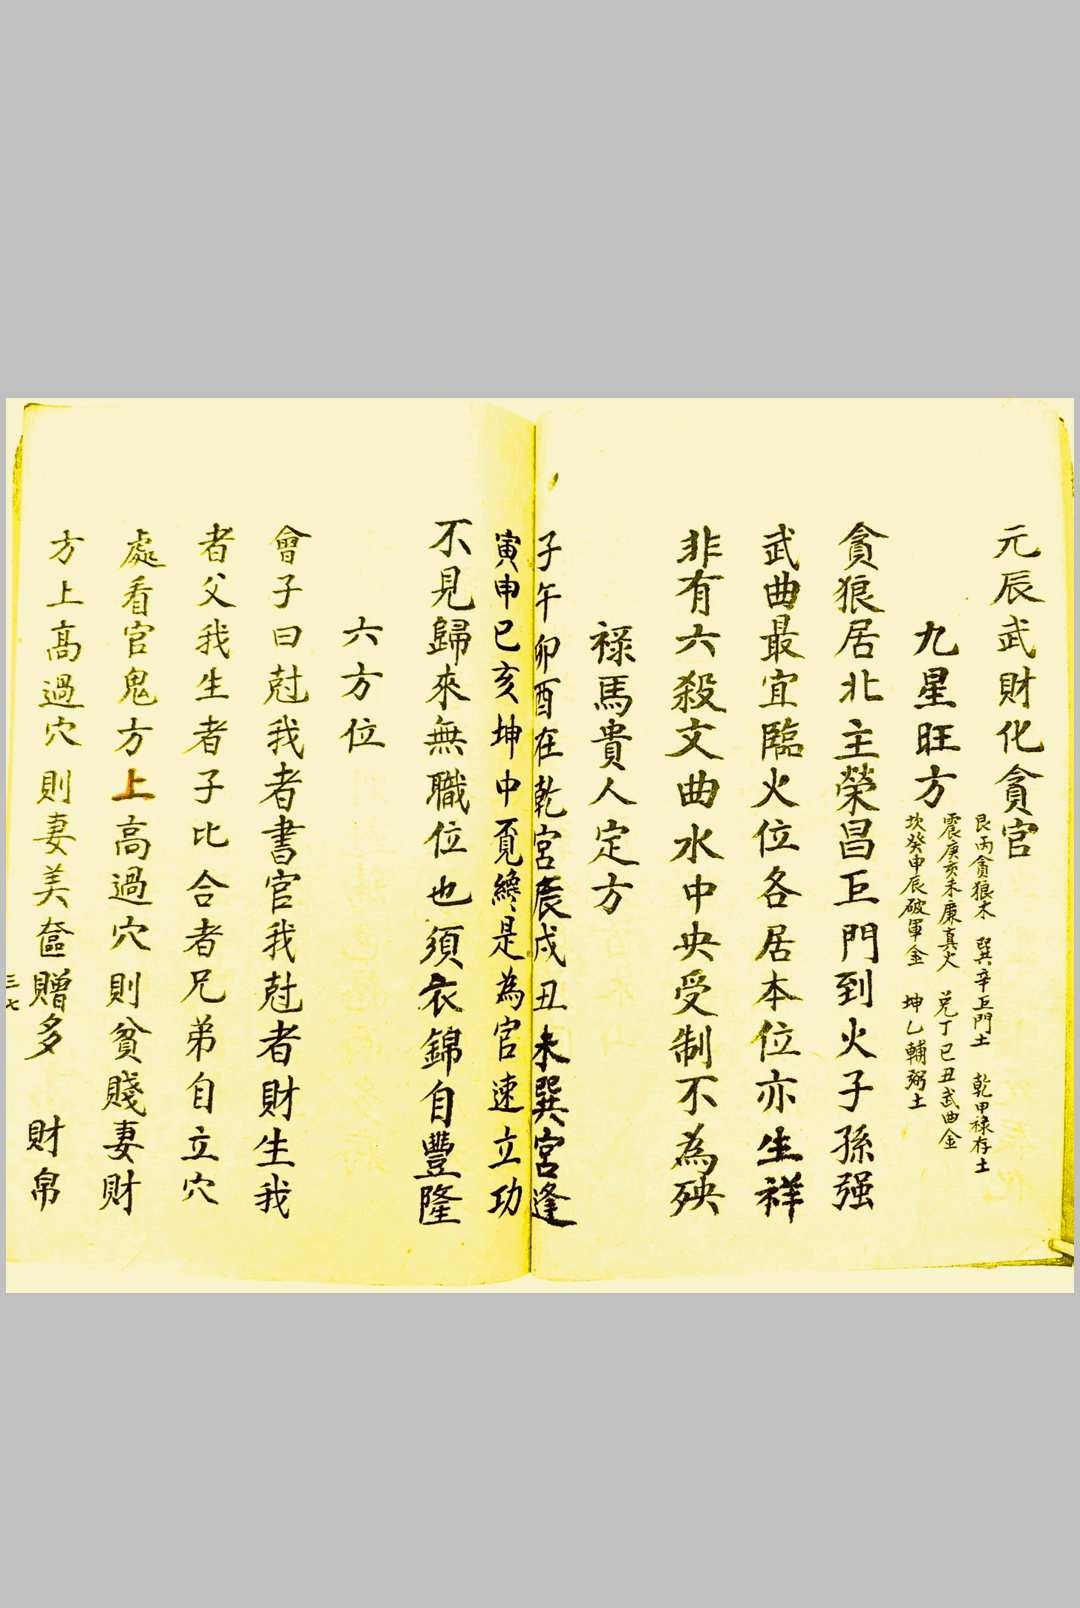 元辰武財化貪官
九星旺方
艮丙貪狼木 巽辛巨門土 乾甲祿存土
震庚亥未廉真火 兌丁巳丑武曲金
坎癸申辰破軍金 坤乙輔弼土
貪狼居北主榮昌巨門到火子孫强
武曲最宜臨火位各居本位亦生祥
非有六殺文曲水中央受制不為殃
祿馬貴人定方
子午卯酉在乾宮辰戌丑未巽宮逢
寅申巳亥坤中覓縂是為官速立功
不見歸來無職位也須衣錦自豐隆
六方位
會子曰尅我者書官我尅者財生我
者父我生者子比合者兄弟自立穴
處看官鬼方上高過穴則貧賤妻財
方上高過穴則妻美奩贈多 財帛
三七